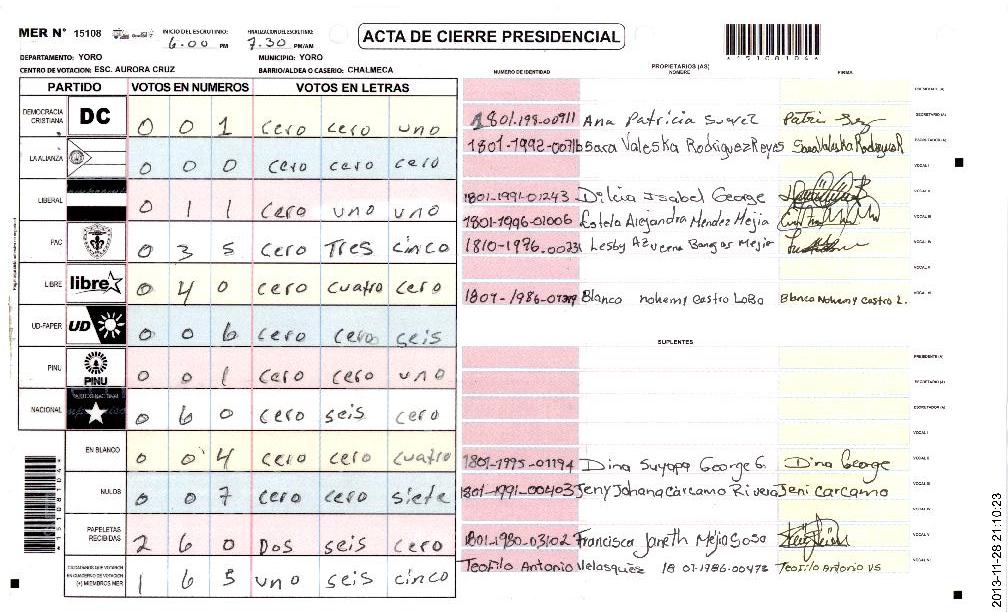 MER N° 15108 INICIO DEL ESCRUTINIO: 6:00 PM FINALIZACION DEL ESCRUTINIO: 7:30 PM/AM
ACTA DE CIERRE PRESIDENCIAL
*15108104*
DEPARTAMENTO: YORO MUNICIPIO: YORO
CENTRO DE VOTACION: ESC. AURORA CRUZ BARRIO/ALDEA O CASERIO: CHALMECA
PARTIDO VOTOS EN NUMEROS VOTOS EN LETRAS
DEMOCRACIA CRISTIANA DC 0 0 1 cero cero uno
LA ALIANZA 0 0 0 cero cero cero
LIBERAL 0 1 1 cero uno uno
PAC 0 3 5 cero Tres cinco
LIBRE libre 0 4 0 cero cuatro cero
UD-FAPER UD 0 0 6 cero cero seis
PINU PINU 0 0 1 cero cero uno
NACIONAL 0 6 0 cero seis cero
EN BLANCO 0 0 4 cero cero cuatro
NULOS 0 0 7 cero cero siete
PAPELETAS RECIBIDAS 2 6 0 Dos seis cero
CIUDADANOS QUE VOTARON EN CUADERNO DE VOTACION (+) MIEMBROS MER 1 6 5 uno seis cinco
PROPIETARIOS (AS)
NUMERO DE IDENTIDAD NOMBRE FIRMA
PRESIDENTE (A)
1801-198-00911 Ana Patricia Suarez SECRETARIO (A)
1801-1992-00716 Sara Valeska Rodriguez Reyes Sara Valeska Rodriguez R ESCRUTADOR (A)
VOCAL I
1801-1991-01243 Dilcia Isabel George VOCAL II
1801-1996-01006 Estela Alejandra Mendez Mejia VOCAL III
1810-1976-00231 Lesby Azucena Bangas Mejia VOCAL IV
VOCAL V
Blanca nohemy Castro Lobo Blanca Nohemy Castro L. VOCAL VI
SUPLENTES
PRESIDENTE (A)
SECRETARIO (A)
ESCRUTADOR (A)
VOCAL I
1801-1995-01194 Dina Suyapa George G. Dina George VOCAL II
1801-1991-00403 Jeny Johana Carcamo Rivera Jeni Carcamo VOCAL III
VOCAL IV
1801-1980-03102 Francisca Janeth Mejia Sosa VOCAL V
Teofilo Antonio Velasquez 18 01-1986-00473 Teofilo Antonio vs VOCAL VI
2013-11-28 21:10:23